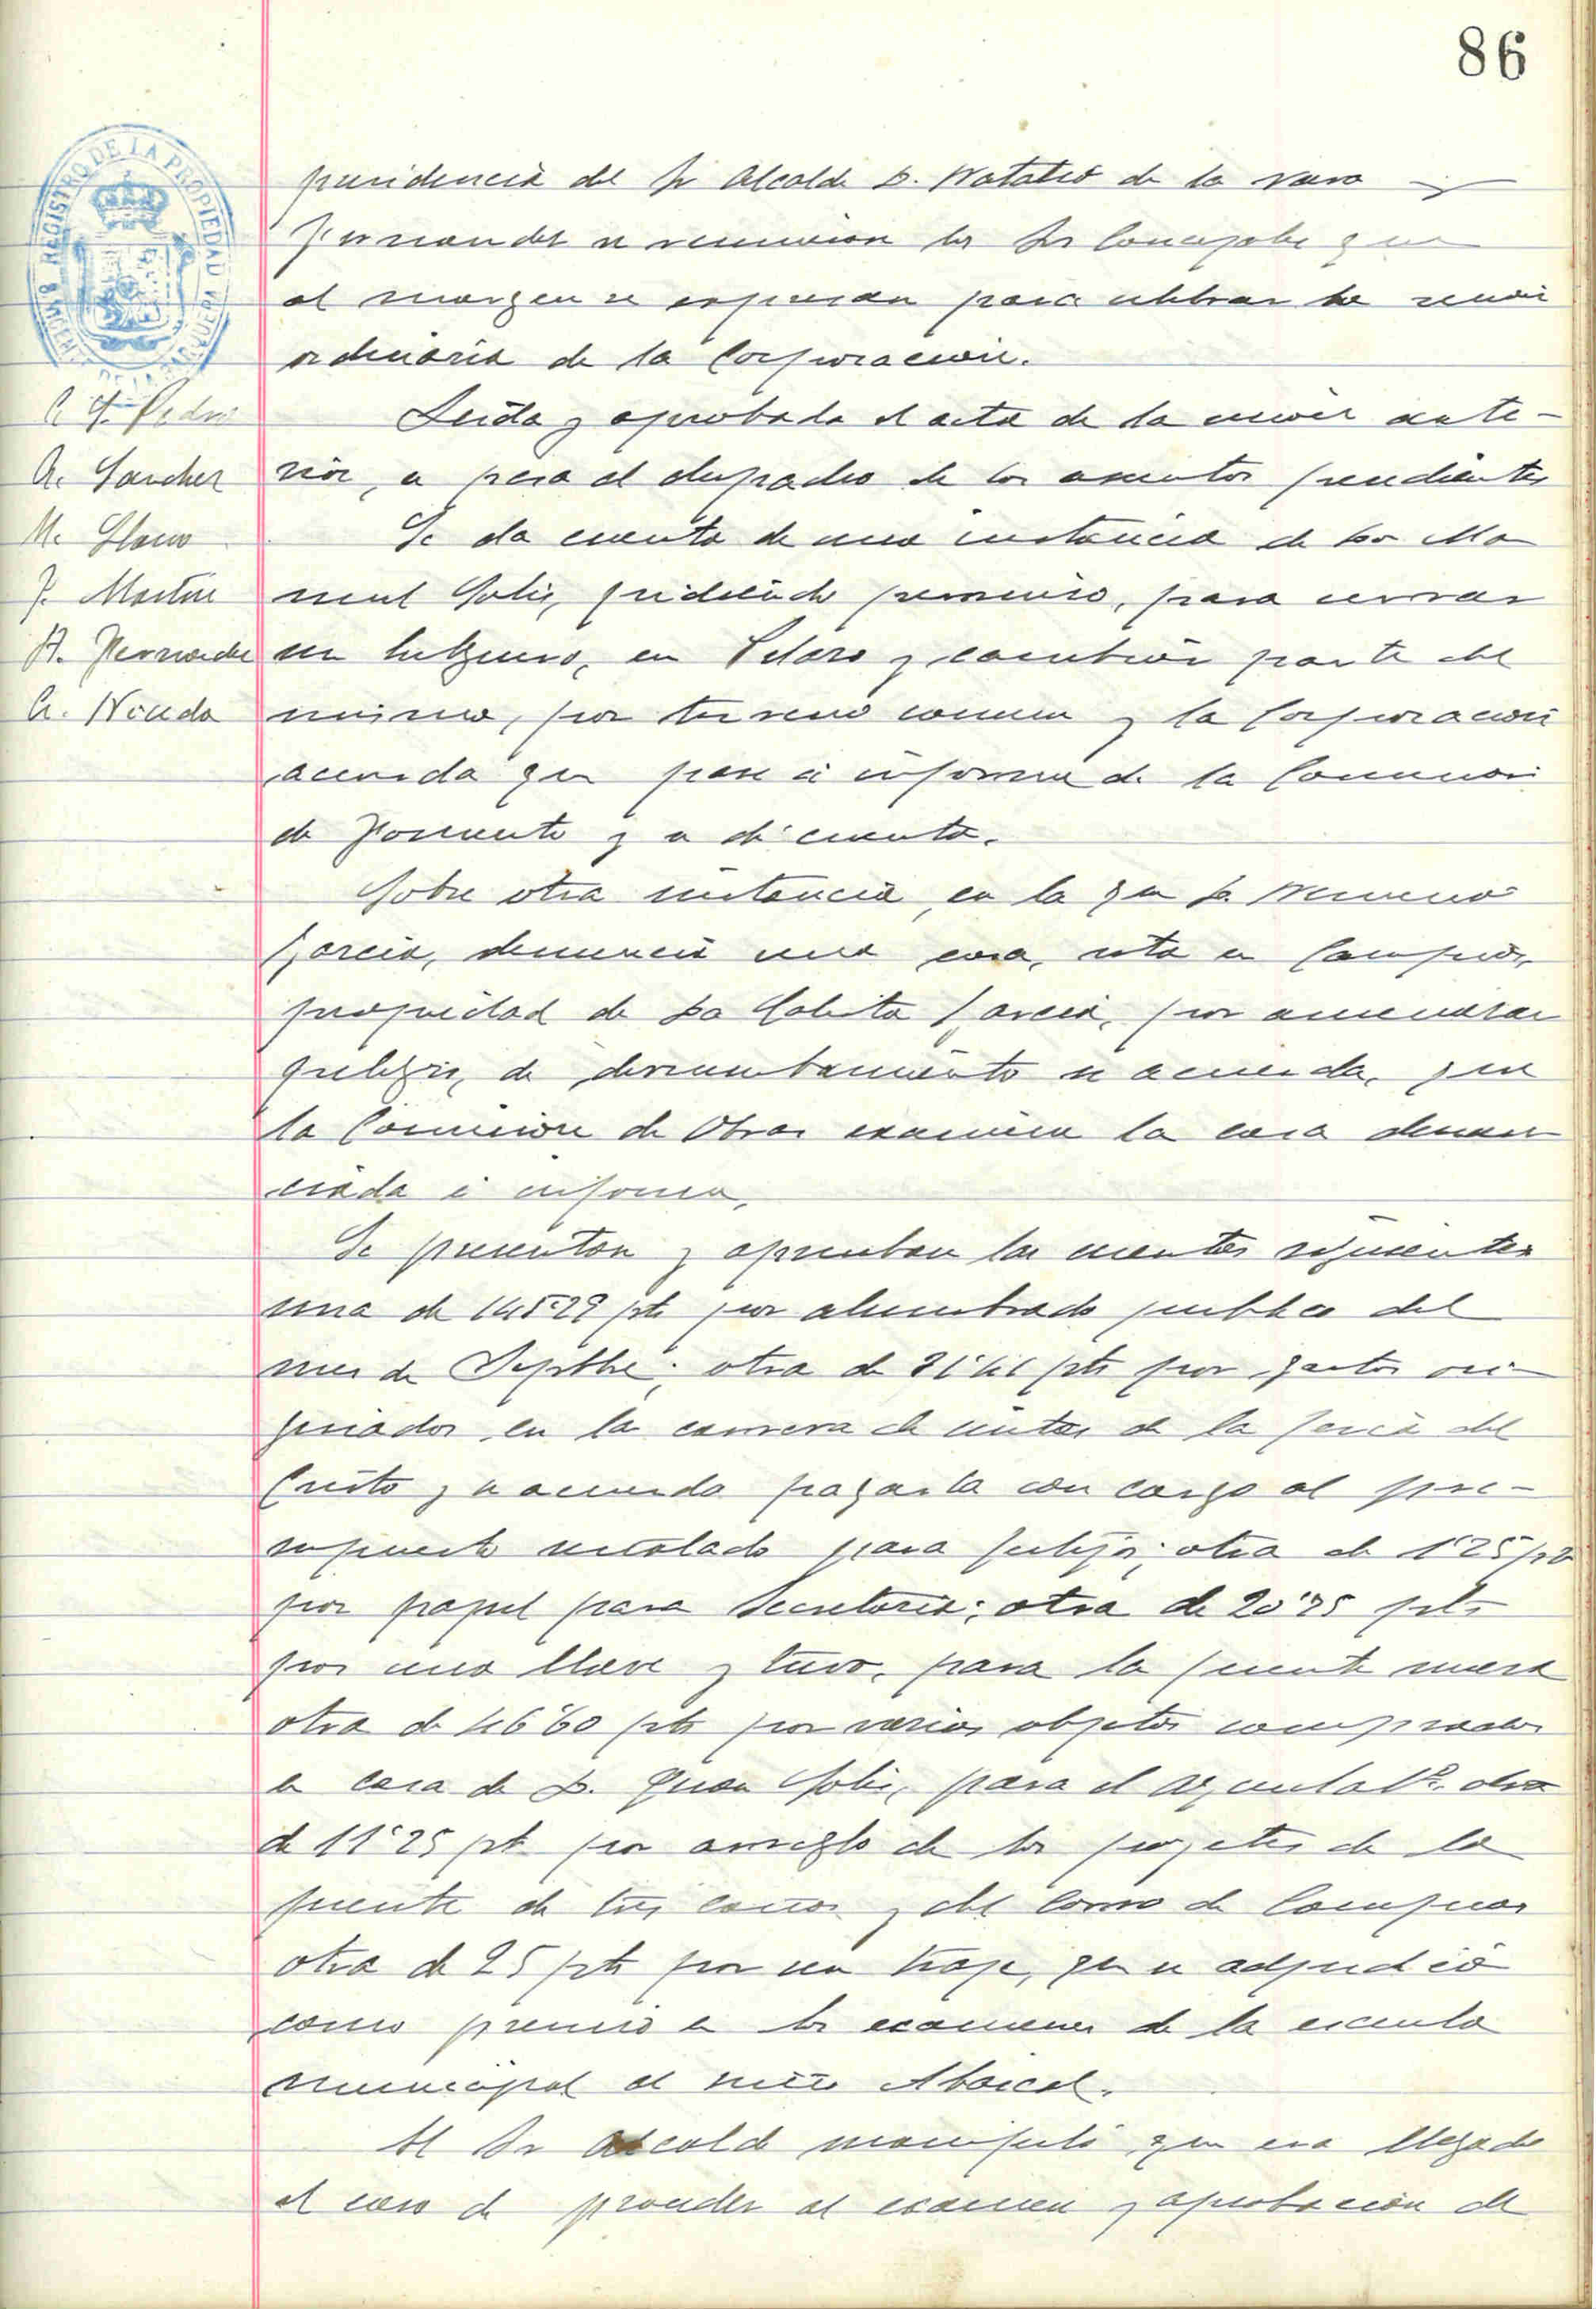 86
REGISTRO DE LA PROPIEDAD
presidencia del Sr Alcalde D. Natalio de la Nava y
Fernandez se reunieron los Srs Concejales que
al margen se expresan para celebrar la sesión
ordinaria de la Corporacion.
Leida y aprobada el acta de la sesión ante-
rior, se pasa al despacho de los asuntos pendientes
Se da cuenta de una instancia de Dn Ma
nuel Solis, pidiendo permiso, para cerrar
un en y cambiar parte del
mismo, por terreno comun y la Corporacion
acuerda que pase á informe de la Comision
de Fomento y se dé cuenta.
Sobre otra instancia, en la que D.
Garcia, denuncia una casa, sita en Campios,
propiedad de Da Garcia, por amenazar
peligro, de derrumbamiento se acuerda, que
la Comision de Obras examine la casa denun
ciada é informe.
Se presentan y aprueban las cuentas siguientes
una de ptas por alumbrado publico del
mes de Septbre; otra de ptas por gastos ori-
ginados en la carrera de cintas de la feria del
Cristo y se acuerda pagarla con cargo al pre-
supuesto señalado para festejos; otra de 1'25 pts
por papel para Secretaria; otra de pts
por una llave y tuvo, para la fuente nueva
otra de 46'60 pts por varios objetos comprados
en casa de D. Juan Solis, para el Ayuntatº. otra
de 11'25 pts por arreglo de los de la
fuente de tres caños y del caño de Campios
otra de 25 pts por un traje, que se adjudicó
como premio en los examenes de la escuela
municipal al niño
El Sr Alcalde manifestó que era llegado
el caso de proceder al examen y aprobacion del
Pedro
A. Sanchez
M. Llano
J. Martin
A. Fernandez
C. Nieda